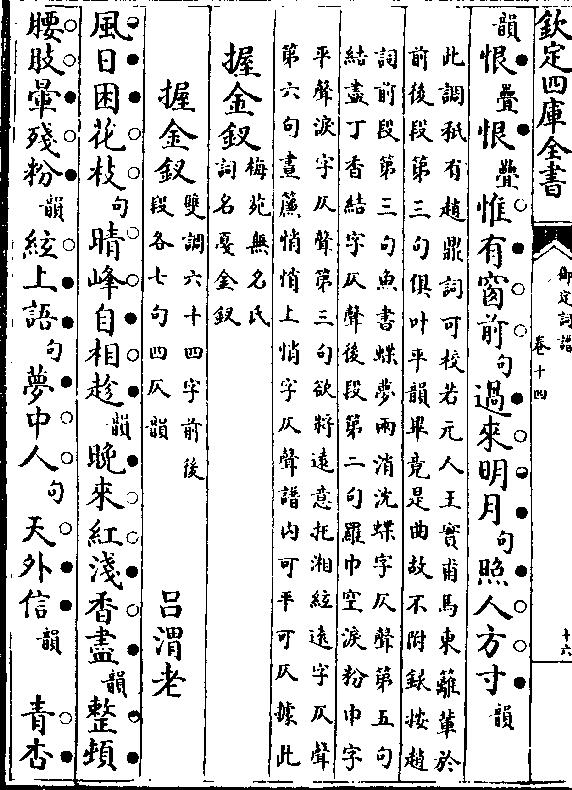 欽定四庫全書
御定詞譜
卷十四
十六
韻恨疊恨疊惟有窗前句過來明月句照人方寸韻
此調秖有趙鼎詞可校若元人王實甫馬東籬輩於
前後段第三句俱叶平韻畢竟是曲故不附錄按趙
詞前段第三句魚書蝶夢兩消沈蝶字仄聲第五句
結盡丁香結字仄聲後段第二句羅巾空淚粉巾字
平聲淚字仄聲第三句欲將遠意托湘絃遠字仄聲
第六句畫簾悄悄上悄字仄聲譜内可平可仄據此
握金釵梅苑無名氏
詞名戞金釵
握金釵雙調六十四字前後
段各七句四仄韻
呂渭老
風日困花枝句晴峰自相趁韻晚來紅淺香盡韻整頓
腰肢暈殘粉韻絃上語句夢中人句天外信韻青杏